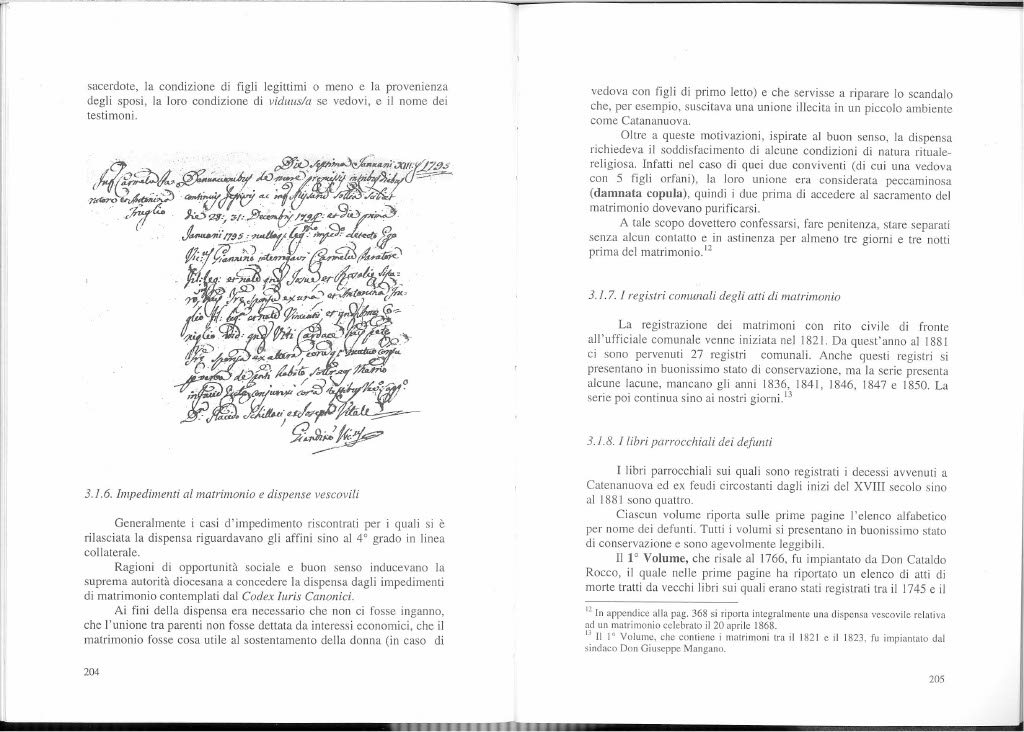 sacerdote, la condizione di figli legittimi o meno e la provenienza
degli sposi, la loro condizione di viduus/a se vedovi, e il nome dei
testimoni.
Die Septima Januarii XIII 1795
Denunciationibus de more premissis
continuis
die 28: 31: Decembris et die prima
Januarii 1795: nulloq; leg: imped: detecto Ego
Giannino interrogavi Carmelu
et Rosalie
ex una et Antonina
Vincentii et
ex altera, eorūq; mutuo
habito
D. Placido Schillaci, et Joseph Vitale
3.1.6. Impedimenti al matrimonio e dispense vescovili
Generalmente i casi d'impedimento riscontrati per i quali si è
rilasciata la dispensa riguardavano gli affini sino al 4° grado in linea
collaterale.
Ragioni di opportunità sociale e buon senso inducevano la
suprema autorità diocesana a concedere la dispensa dagli impedimenti
di matrimonio contemplati dal Codex Iuris Canonici.
Ai fini della dispensa era necessario che non ci fosse inganno,
che l'unione tra parenti non fosse dettata da interessi economici, che il
matrimonio fosse cosa utile al sostentamento della donna (in caso di
204
vedova con figli di primo letto) e che servisse a riparare lo scandalo
che, per esempio, suscitava una unione illecita in un piccolo ambiente
come Catananuova.
Oltre a queste motivazioni, ispirate al buon senso, la dispensa
richiedeva il soddisfacimento di alcune condizioni di natura rituale-
religiosa. Infatti nel caso di quei due conviventi (di cui una vedova
con 5 figli orfani), la loro unione era considerata peccaminosa
(damnata copula), quindi i due prima di accedere al sacramento del
matrimonio dovevano purificarsi.
A tale scopo dovettero confessarsi, fare penitenza, stare separati
senza alcun contatto e in astinenza per almeno tre giorni e tre notti
prima del matrimonio.12
3.1.7. I registri comunali degli atti di matrimonio
La registrazione dei matrimoni con rito civile di fronte
all'ufficiale comunale venne iniziata nel 1821. Da quest'anno al 1881
ci sono pervenuti 27 registri comunali. Anche questi registri si
presentano in buonissimo stato di conservazione, ma la serie presenta
alcune lacune, mancano gli anni 1836, 1841, 1846, 1847 e 1850. La
serie poi continua sino ai nostri giorni.13
3.1.8. I libri parrocchiali dei defunti
I libri parrocchiali sui quali sono registrati i decessi avvenuti a
Catenanuova ed ex feudi circostanti dagli inizi del XVIII secolo sino
al 1881 sono quattro.
Ciascun volume riporta sulle prime pagine l'elenco alfabetico
per nome dei defunti. Tutti i volumi si presentano in buonissimo stato
di conservazione e sono agevolmente leggibili.
Il 1° Volume, che risale al 1766, fu impiantato da Don Cataldo
Rocco, il quale nelle prime pagine ha riportato un elenco di atti di
morte tratti da vecchi libri sui quali erano stati registrati tra il 1745 e il
12 In appendice alla pag. 368 si riporta integralmente una dispensa vescovile relativa
ad un matrimonio celebrato il 20 aprile 1868.
13 Il 1° Volume, che contiene i matrimoni tra il 1821 e il 1823, fu impiantato dal
sindaco Don Giuseppe Mangano.
205